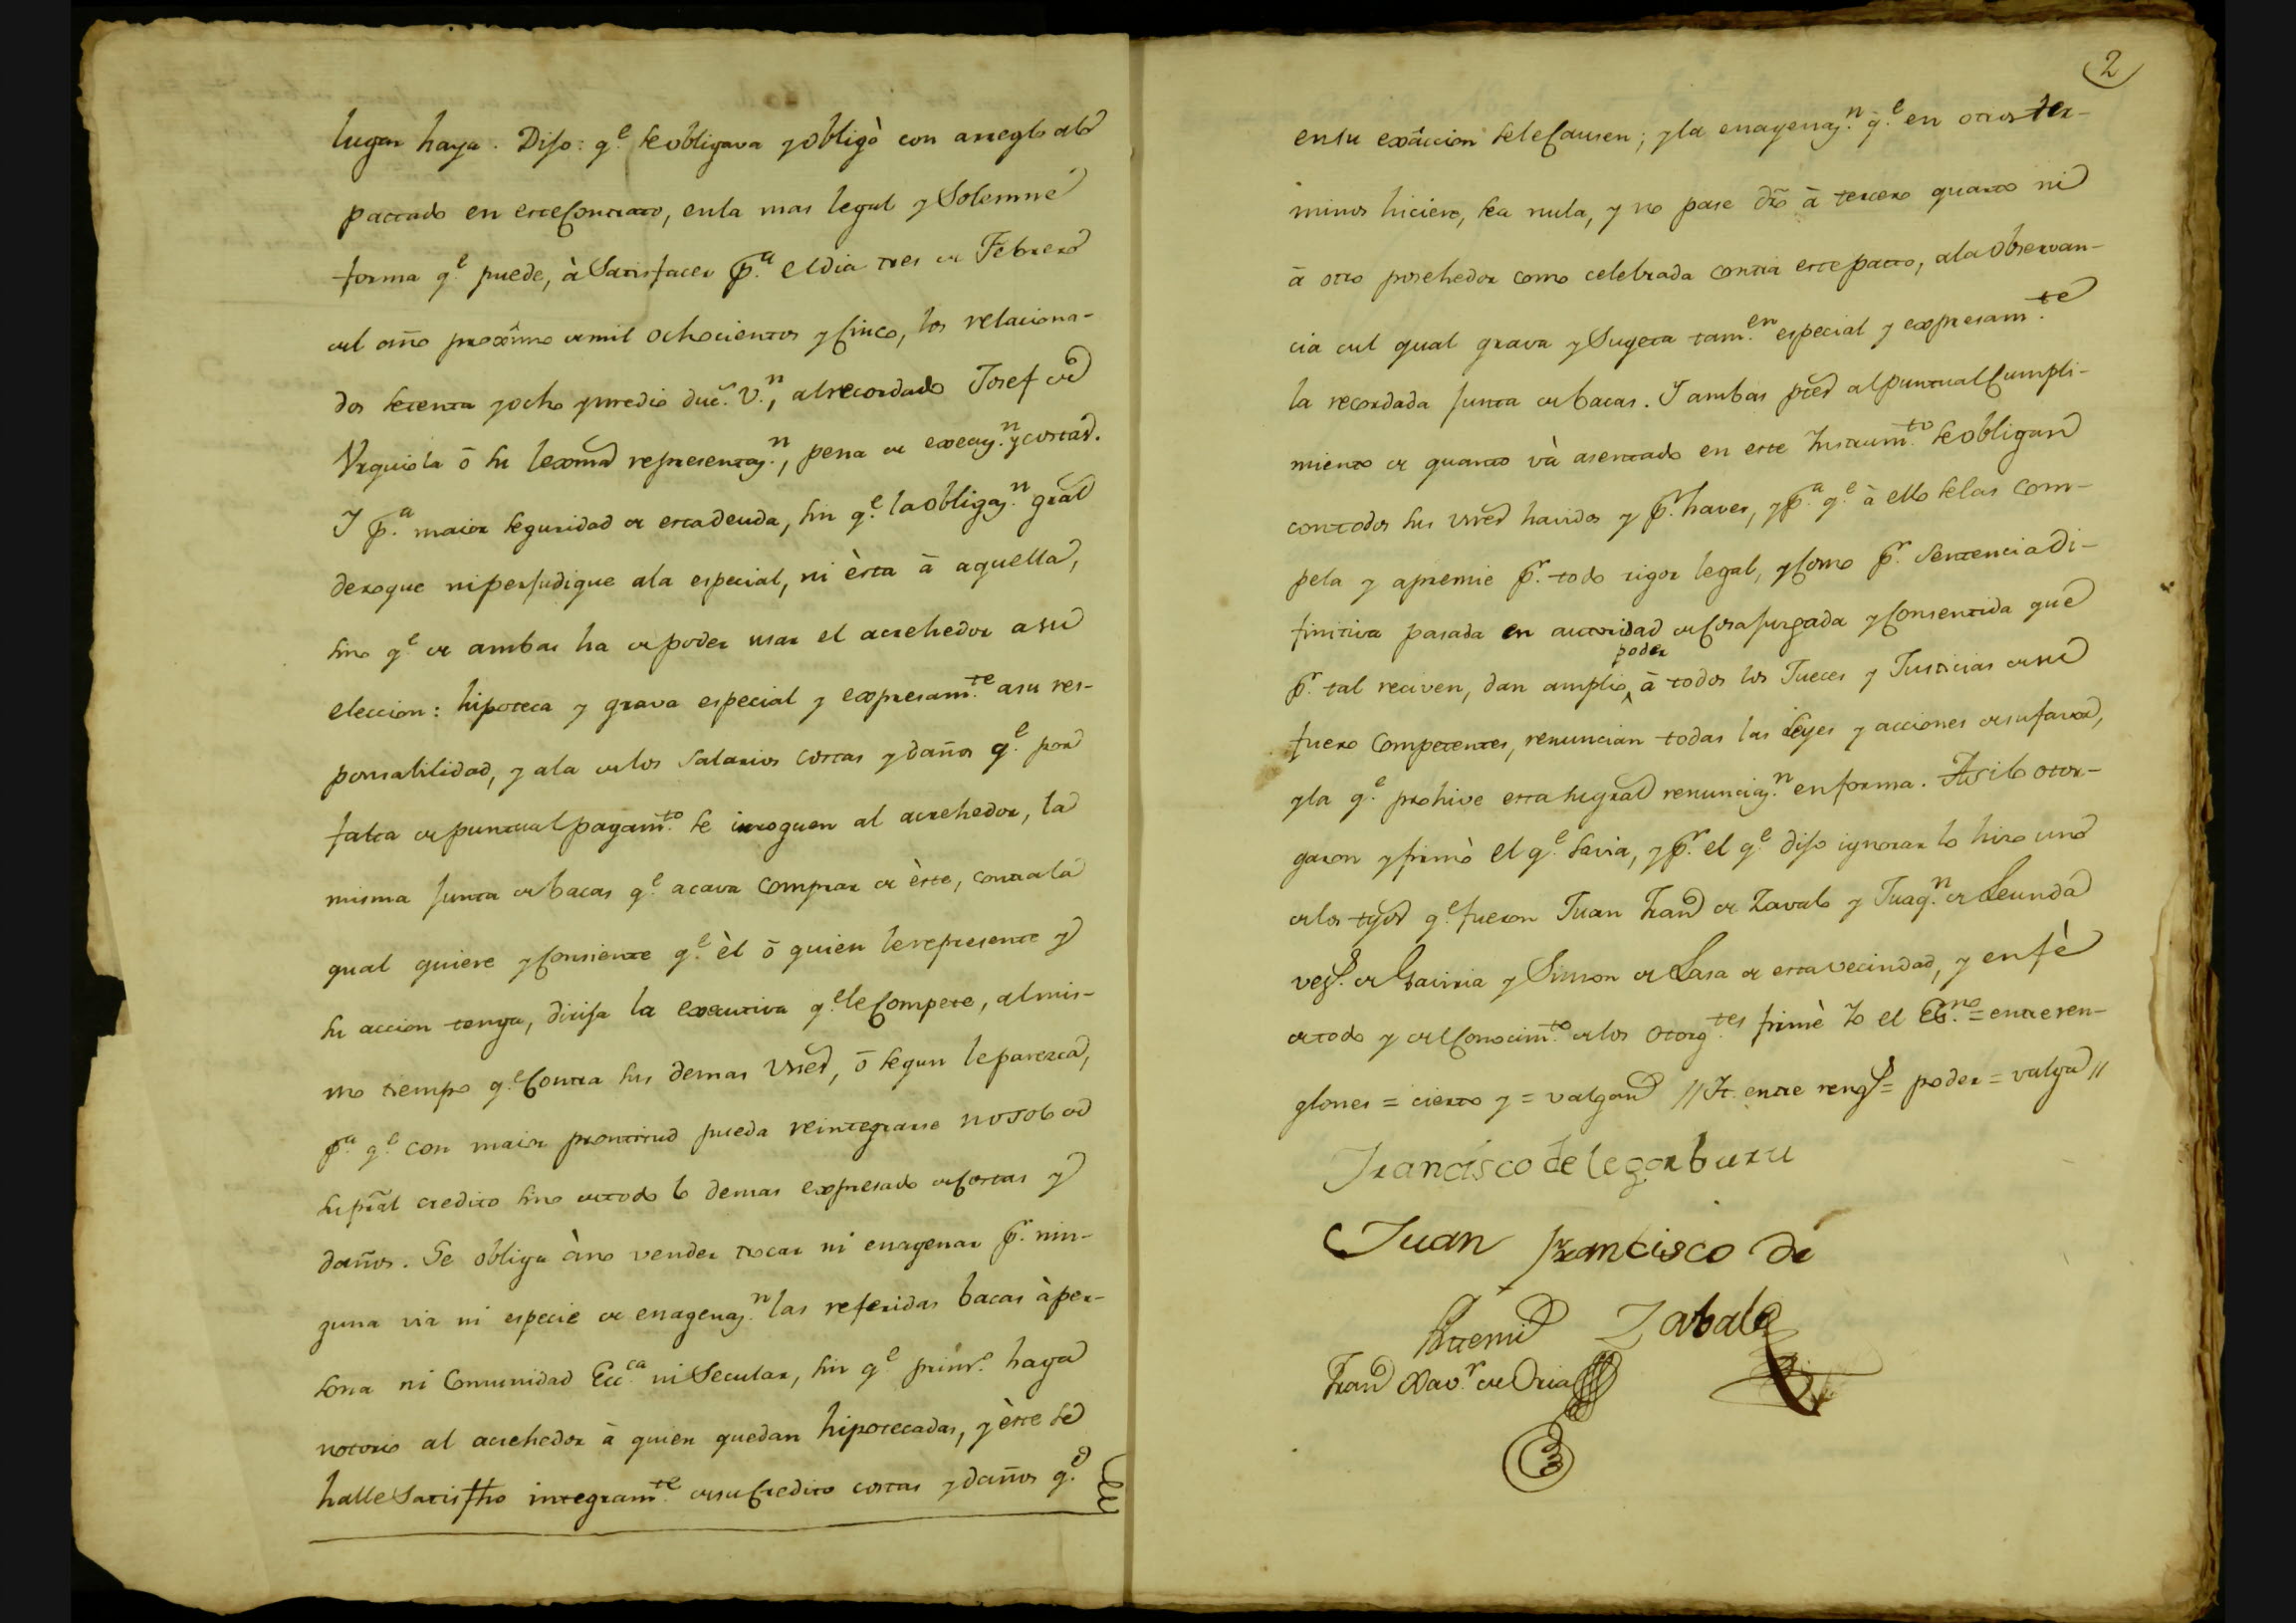 lugar haya. Dijo: q.e se obligava y obligò con arreglo alo
pactado en este Contrato, en la mas legal y Solemne
forma q.e puede, à Satisfacer p.a el dia tres de Febrero
del año proximo de mil ochocientos y Cinco, los relaciona-
dos setenta y ocho y medio duc.s v.n, al recordado Josef de
Urquiola ō su lexma representaz.n, pena de execuz.n y costas.
Y p.a maior seguridad de esta deuda, sin q.e la obligaz.n gral
derogue ni perjudique ala especial, ni èsta ā aquella,
sino q.e de ambas ha de poder usar el acrehedor a su
eleccion: hipoteca y grava especial y expresam.te a su res-
ponsabilidad, y ala de los Salarios costas y daños q.e por
falta de puntual pagam.to se irroguen al acrehedor, la
misma junta de bacas q.e acava comprar de èste, contra la
qual quiere y Consiente q.e èl ō quien le represente y
su accion tenga, dirija la executiva q.e le Compete, al mis-
mo tiempo q.e Contra sus demas vnes, ō segun le parezca,
p.a q.e con maior prontitud pueda reintegrarse no solo de
su pral credito sino de todo lo demas expresado de Costas y
daños. Se obliga à no vender trocar ni enagenar p.r nin-
guna via ni especie de enagenaz.n las referidas bacas à per-
sona ni Comunidad Ecc.ca ni Secular, sin q.e prim.o haga
notorio al acrehedor ā quien quedan hipotecadas, y èste se
halle Satisfho integram.te de su Credito costas y daños q.e
2
en su exâccion se le Causen; y la enagenaz.n q.e en otros ter-
minos hiciere, sea nula, y no pase dro ā tercero quarto ni
ā otro posehedor como celebrada contra este pacto, ala observan-
cia del qual grava y Sugeta tam.en especial y expresam.te
la recordada junta de bacas. Y ambas ptes al puntual Cumpli-
miento de quanto và asentado en este Instrum.to se obligan
con todos sus vnes havidos y p.r haver, y p.a q.e à ello se las com-
pela y apremie p.r todo rigor legal, y Como p.r Sentencia di-
finitiva pasada en autoridad de Cosa juzgada y Consentida que
poder
p.r tal reciven, dan amplio ā todos los Jueces y Justicias de su
fuero Competentes, renuncian todas las Leyes y acciones de su favor,
y la q.e prohive esta su gral renunciaz.n en forma. Asi lo otor-
garon y firmò el q.e savia, y p.r el q.e dijo ignorar lo hizo uno
de los tgos q.e fueron Juan Fran.co de Zavala y Juaq.n de Leunda
vez.s de Gaviria y Simon de Lasa de esta vecindad, y en fè
de todo y del Conocim.to de los otorg.tes firmè Yo el Ess.no = entreren-
glones = cierto y = valgan // It. entre reng.s = poder = valga //
Francisco de legorburu
Juan Francisco de
Zabala
Antemi
Fran.co Xav.r de Oria